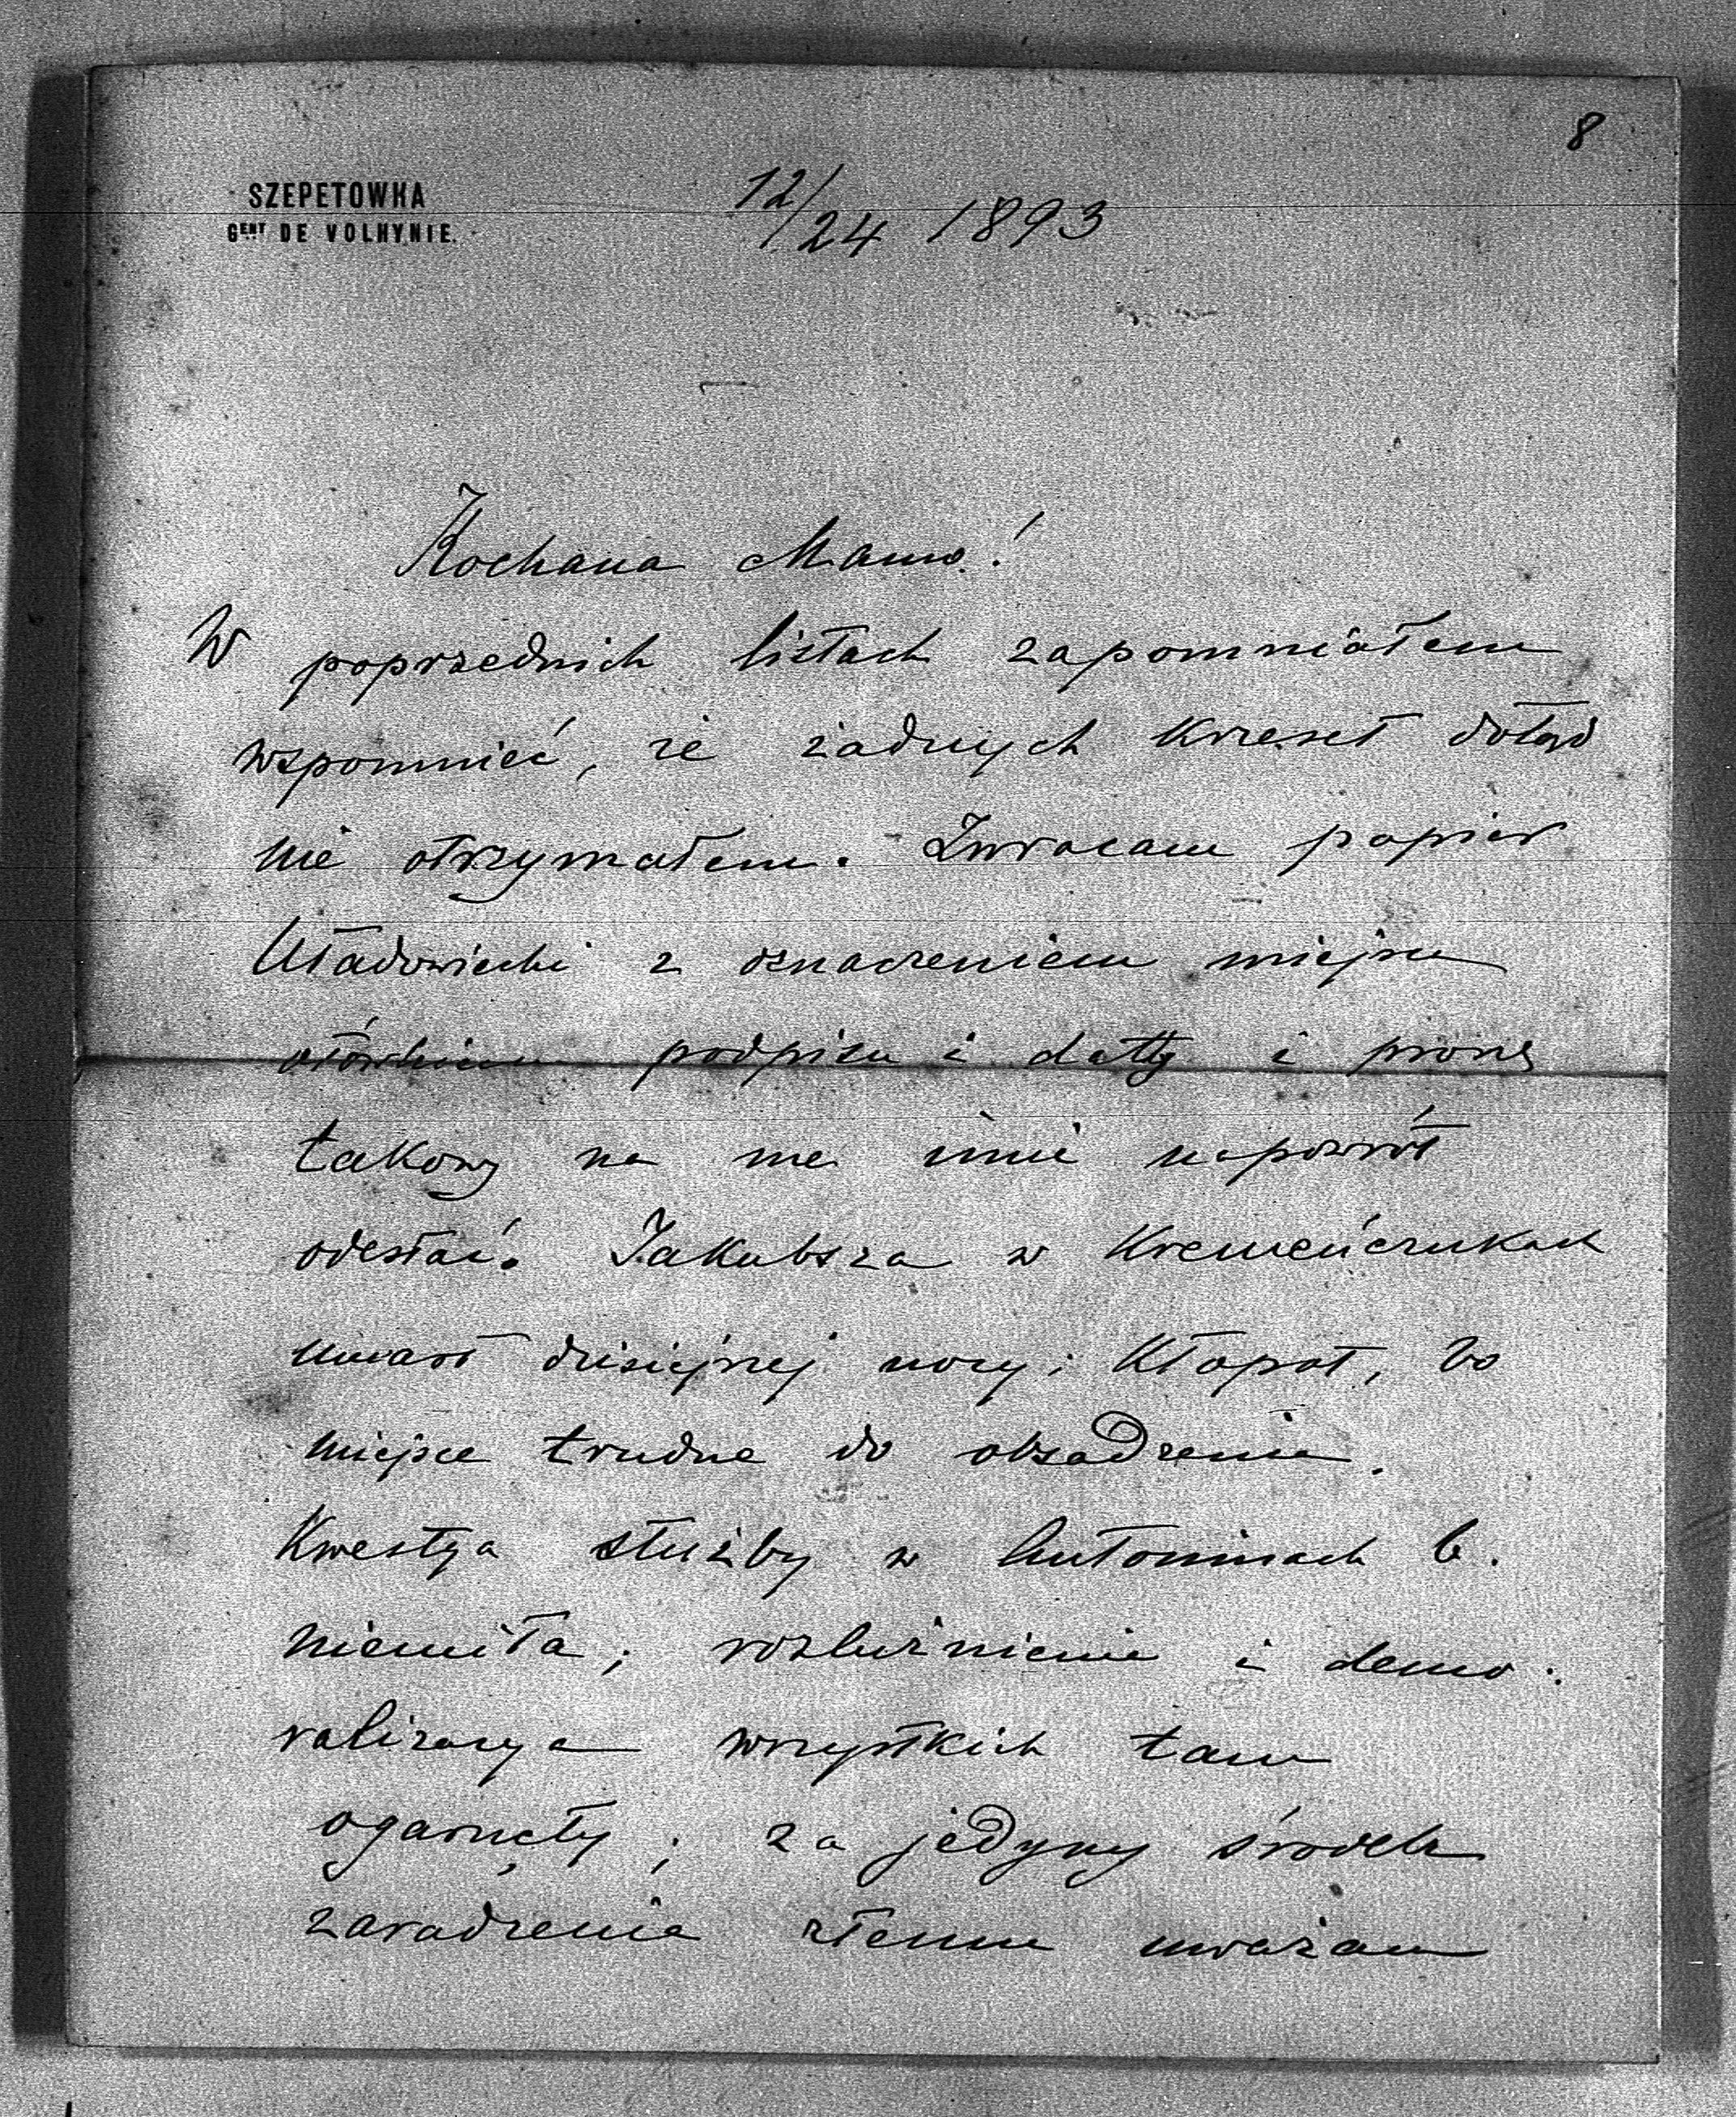 8
SZEPETOWKA
GENT DE VOLHYNIE.
12/24 1893
Kochana Mamo!
W poprzednich listach zapomniałem
wspomnieć, że żadnych krzeseł dotąd
nie otrzymałem. Zwracam papier
Uładowiecki z oznaczeniem miejsca
ołówkiem podpisu i datty i proszę
takowy na me imie napowrót
odesłać. Jakubsza w Kremeńczukach
umarł dzisiejszej nocy; kłopot, bo
miejsce trudne do obsadzenia.
Kwestya służby w Antoninach b.
niemiła; rozluźnienie i demo-
ralizacya wszystkich tam
ogarnęły; za jedyny środek
zaradzenia złemu uważam